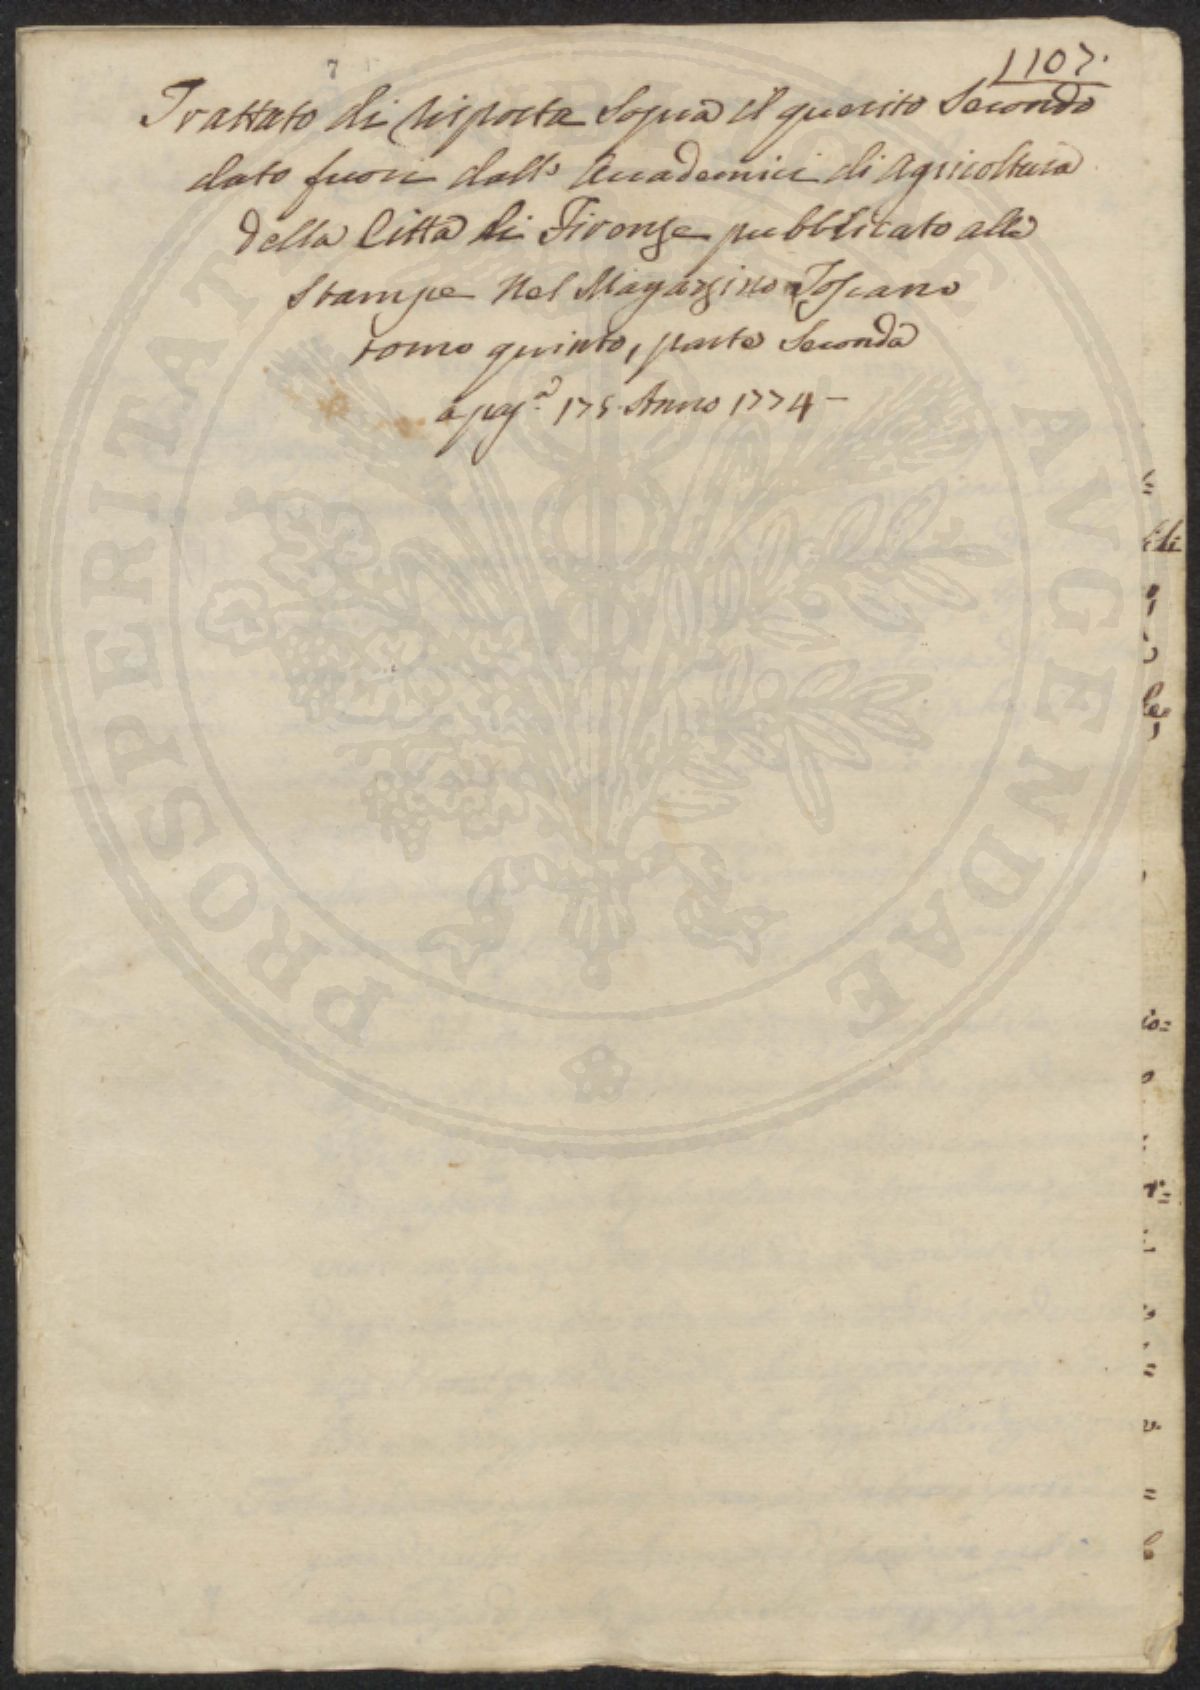 1107.
7
Trattato di risposta sopra il quesito secondo
dato fuori dalli Accademici di Agricoltura
della Città di Firenze pubblicato alle
stampe nel Magazzino Toscano
tomo quinto, parte seconda
a pag.ᵃ 175 Anno 1774 –
PROSPERITATI PUBLICAE AVGENDAE